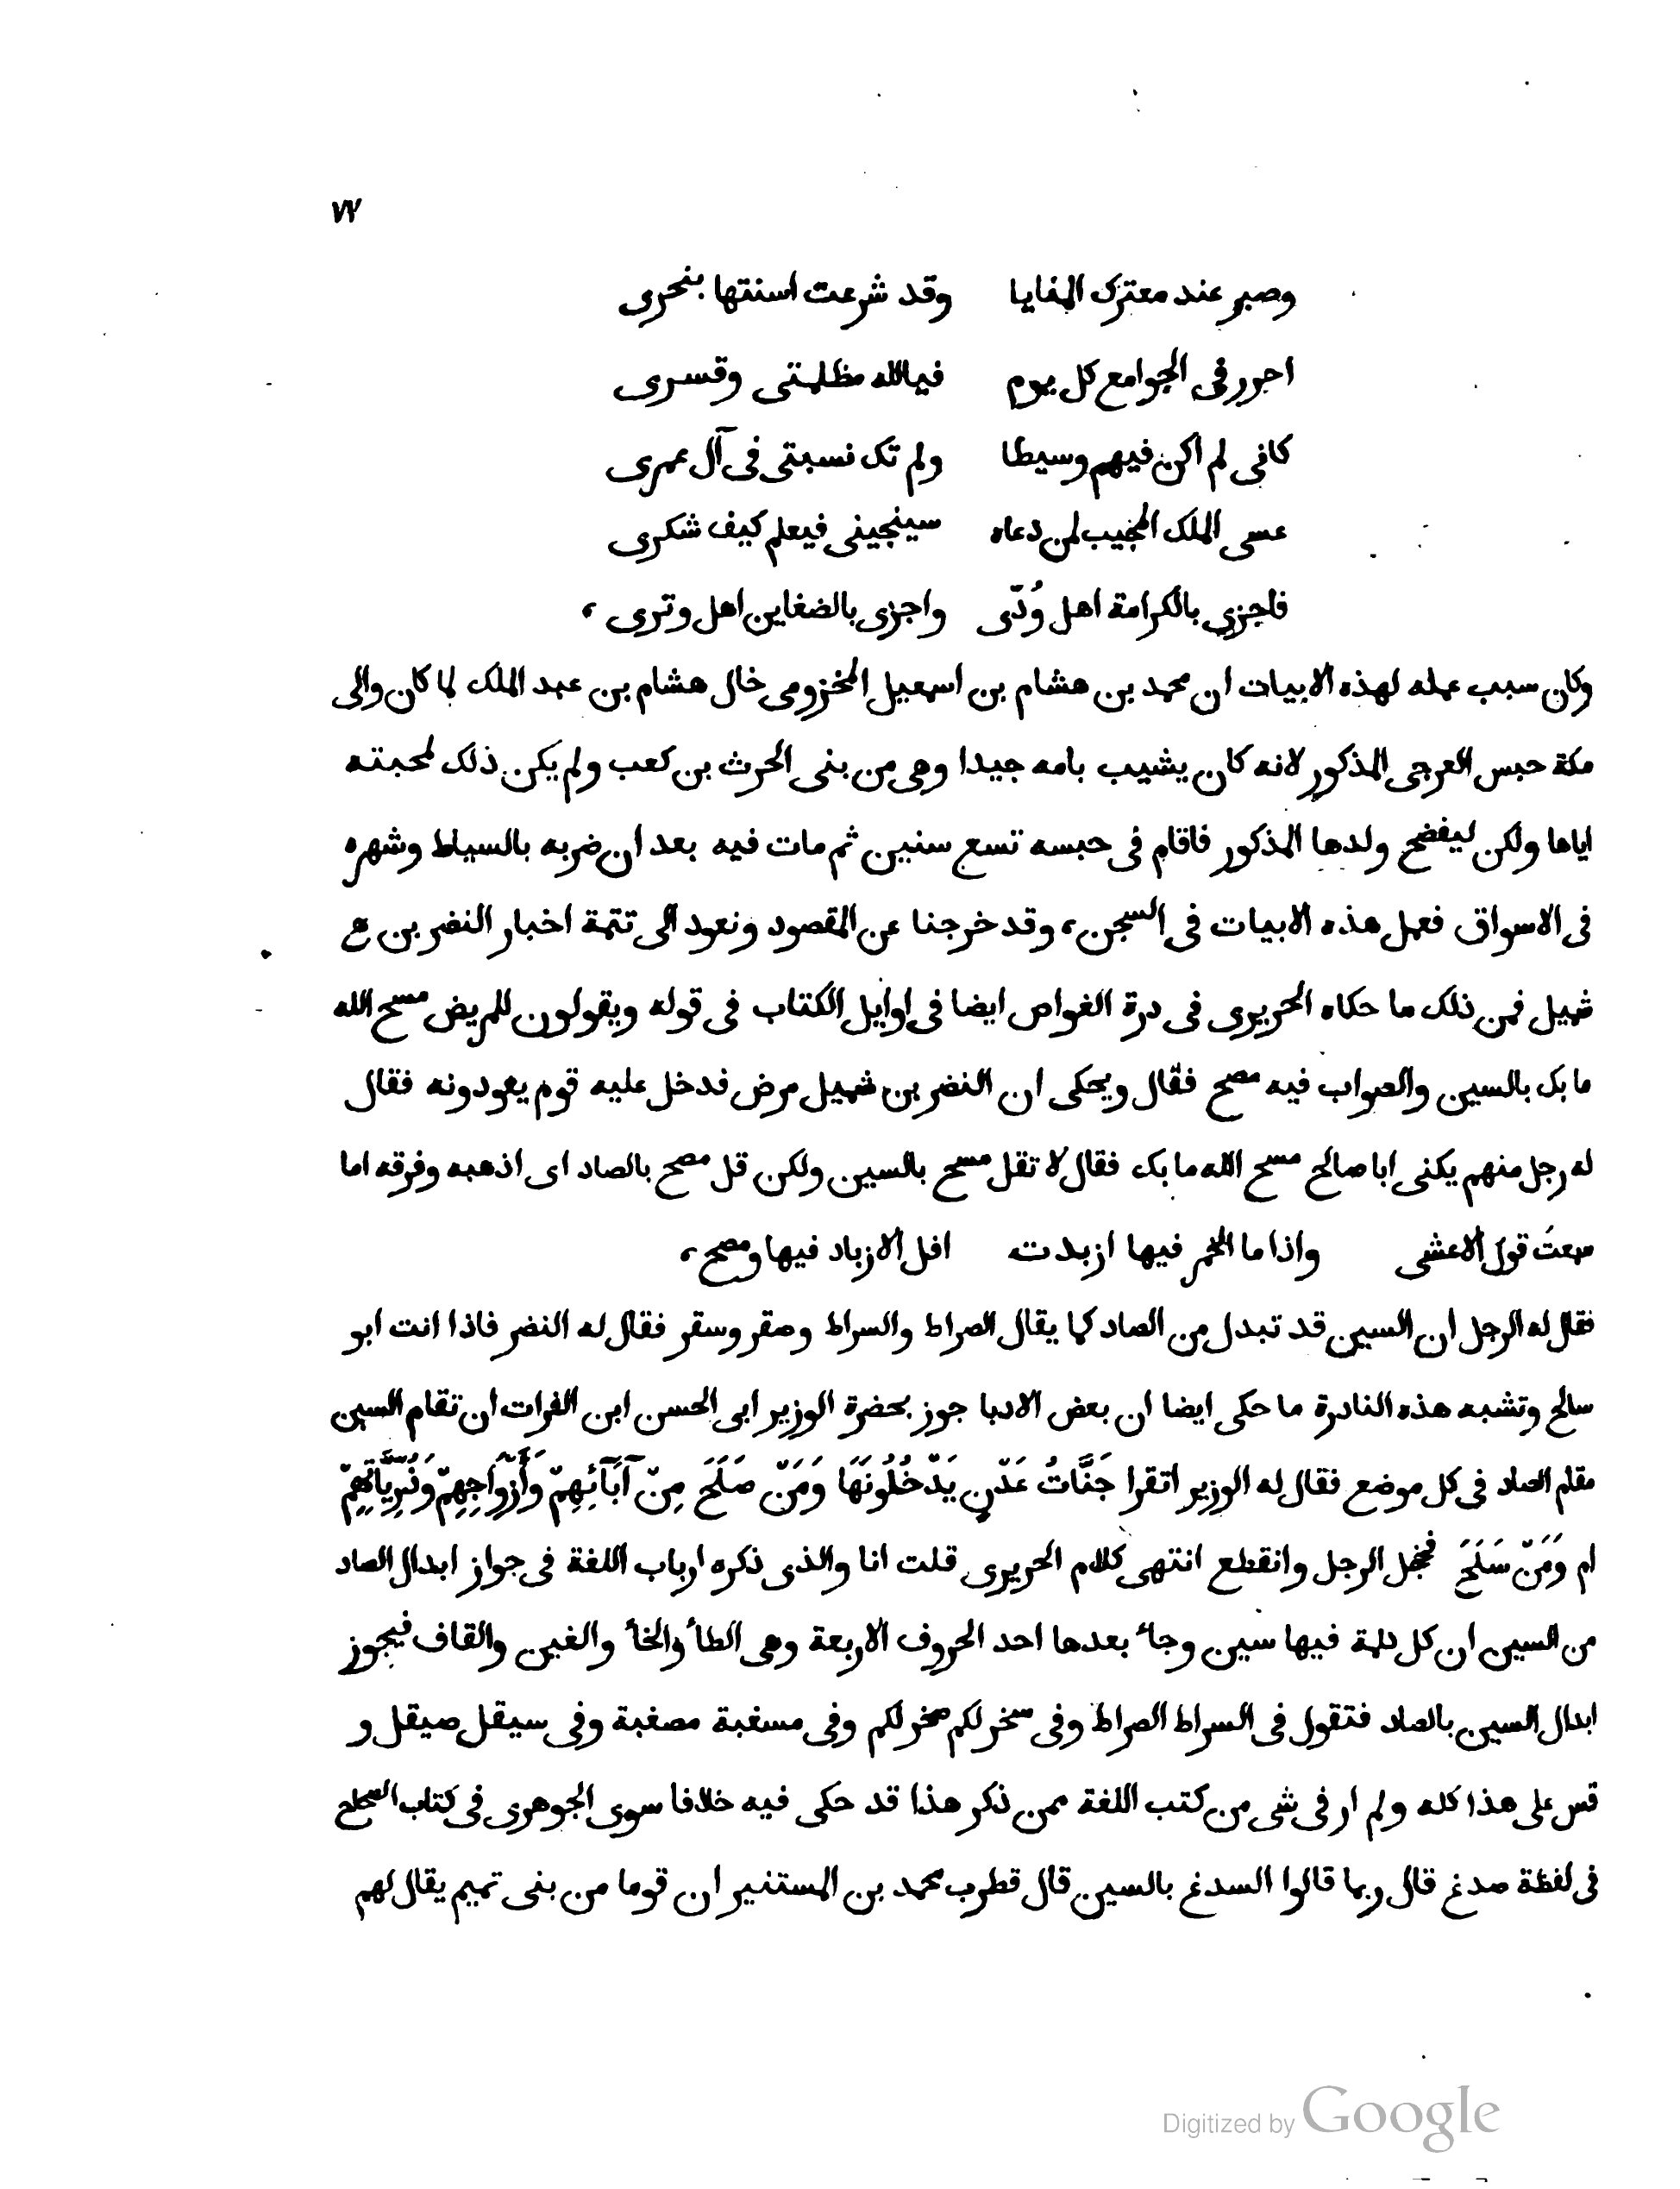 ٧٧
وصبر عند معترك المنايا وقد شرعت اسنتها بنحرى
اجرر فى الجوامع كل يوم فيالله مظلمتى وقسرى
كانى لم اكن فيهم وسيطا ولم تك نسبتى فى آل عمرى
عسى الملك المجيب لمن دعاه سينجينى فيعلم كيف شكرى
فاجزى بالكرامة اهل وُدّى واجزى بالضغاين اهل وترى،
وكان سبب عمله لهذه الابيات ان محمد بن هشام بن اسمعيل المخزومى خال هشام بن عبد الملك لما كان والى
مكة حبس العرجى المذكور لانه كان يشبب بامه جيدا وهى من بنى الحرث بن كعب ولم يكن ذلك لمحبته
اياها ولكن ليفضح ولدها المذكور فاقام فى حبسه تسع سنين ثم مات فيه بعد ان ضربه بالسياط وشهره
فى الاسواق فعمل هذه الابيات فى السجن، وقد خرجنا عن المقصود ونعود الى تتمة اخبار النضر بن
شميل فمن ذلك ما حكاه الحريرى فى درة الغواص ايضا فى اوايل الكتاب فى قوله ويقولون للمريض مسح الله
ما بك بالسين والصواب فيه مصح فقال ويحكى ان النضر بن شميل مرض فدخل عليه قوم يعودونه فقال
له رجل منهم يكنى ابا صالح مسح الله ما بك فقال لا تقل مسح بالسين ولكن قل مصح بالصاد اى اذهبه وفرقه اما
سمعتَ قول الاعشى واذا ما الخمر فيها ازبدت افل الازباد فيها ومصح،
فقال له الرجل ان السين قد تبدل من الصاد كما يقال الصراط والسراط وصقر وسقر فقال له النضر فاذا انت ابو
سالح وتشبه هذه النادرة ما حكى ايضا ان بعض الادبا جوز بحضرة الوزير ابى الحسن ابن الفرات ان تقام السين
مقام الصاد فى كل موضع فقال له الوزير اتقرا جَنَّاتُ عَدْنٍ يَدْخُلُونَهَا وَمَنْ صَلَحَ مِنْ آبَآئِهِمْ وَأَزْوَاجِهِمْ وَذُرِّيَّاتِهِمْ
ام وَمَنْ سَلَحَ فخجل الرجل وانقطع انتهى كلام الحريرى قلت انا والذى ذكره ارباب اللغة فى جواز ابدال الصاد
من السين ان كل كلمة فيها سين وجاء بعدها احد الحروف الاربعة وهى الطاء والخاء والغين والقاف فيجوز
ابدال السين بالصاد فتقول فى السراط الصراط وفى سخر لكم صخر لكم وفى مسغبة مصغبة وفى سيقل صيقل و
قس على هذا كله ولم ار فى شى من كتب اللغة ممن ذكر هذا قد حكى فيه خلافا سوى الجوهرى فى كتاب الصحاح
فى لفظة صدغ قال ربما قالوا السدغ بالسين قال قطرب محمد بن المستنير ان قوما من بنى تميم يقال لهم
Digitized by Google